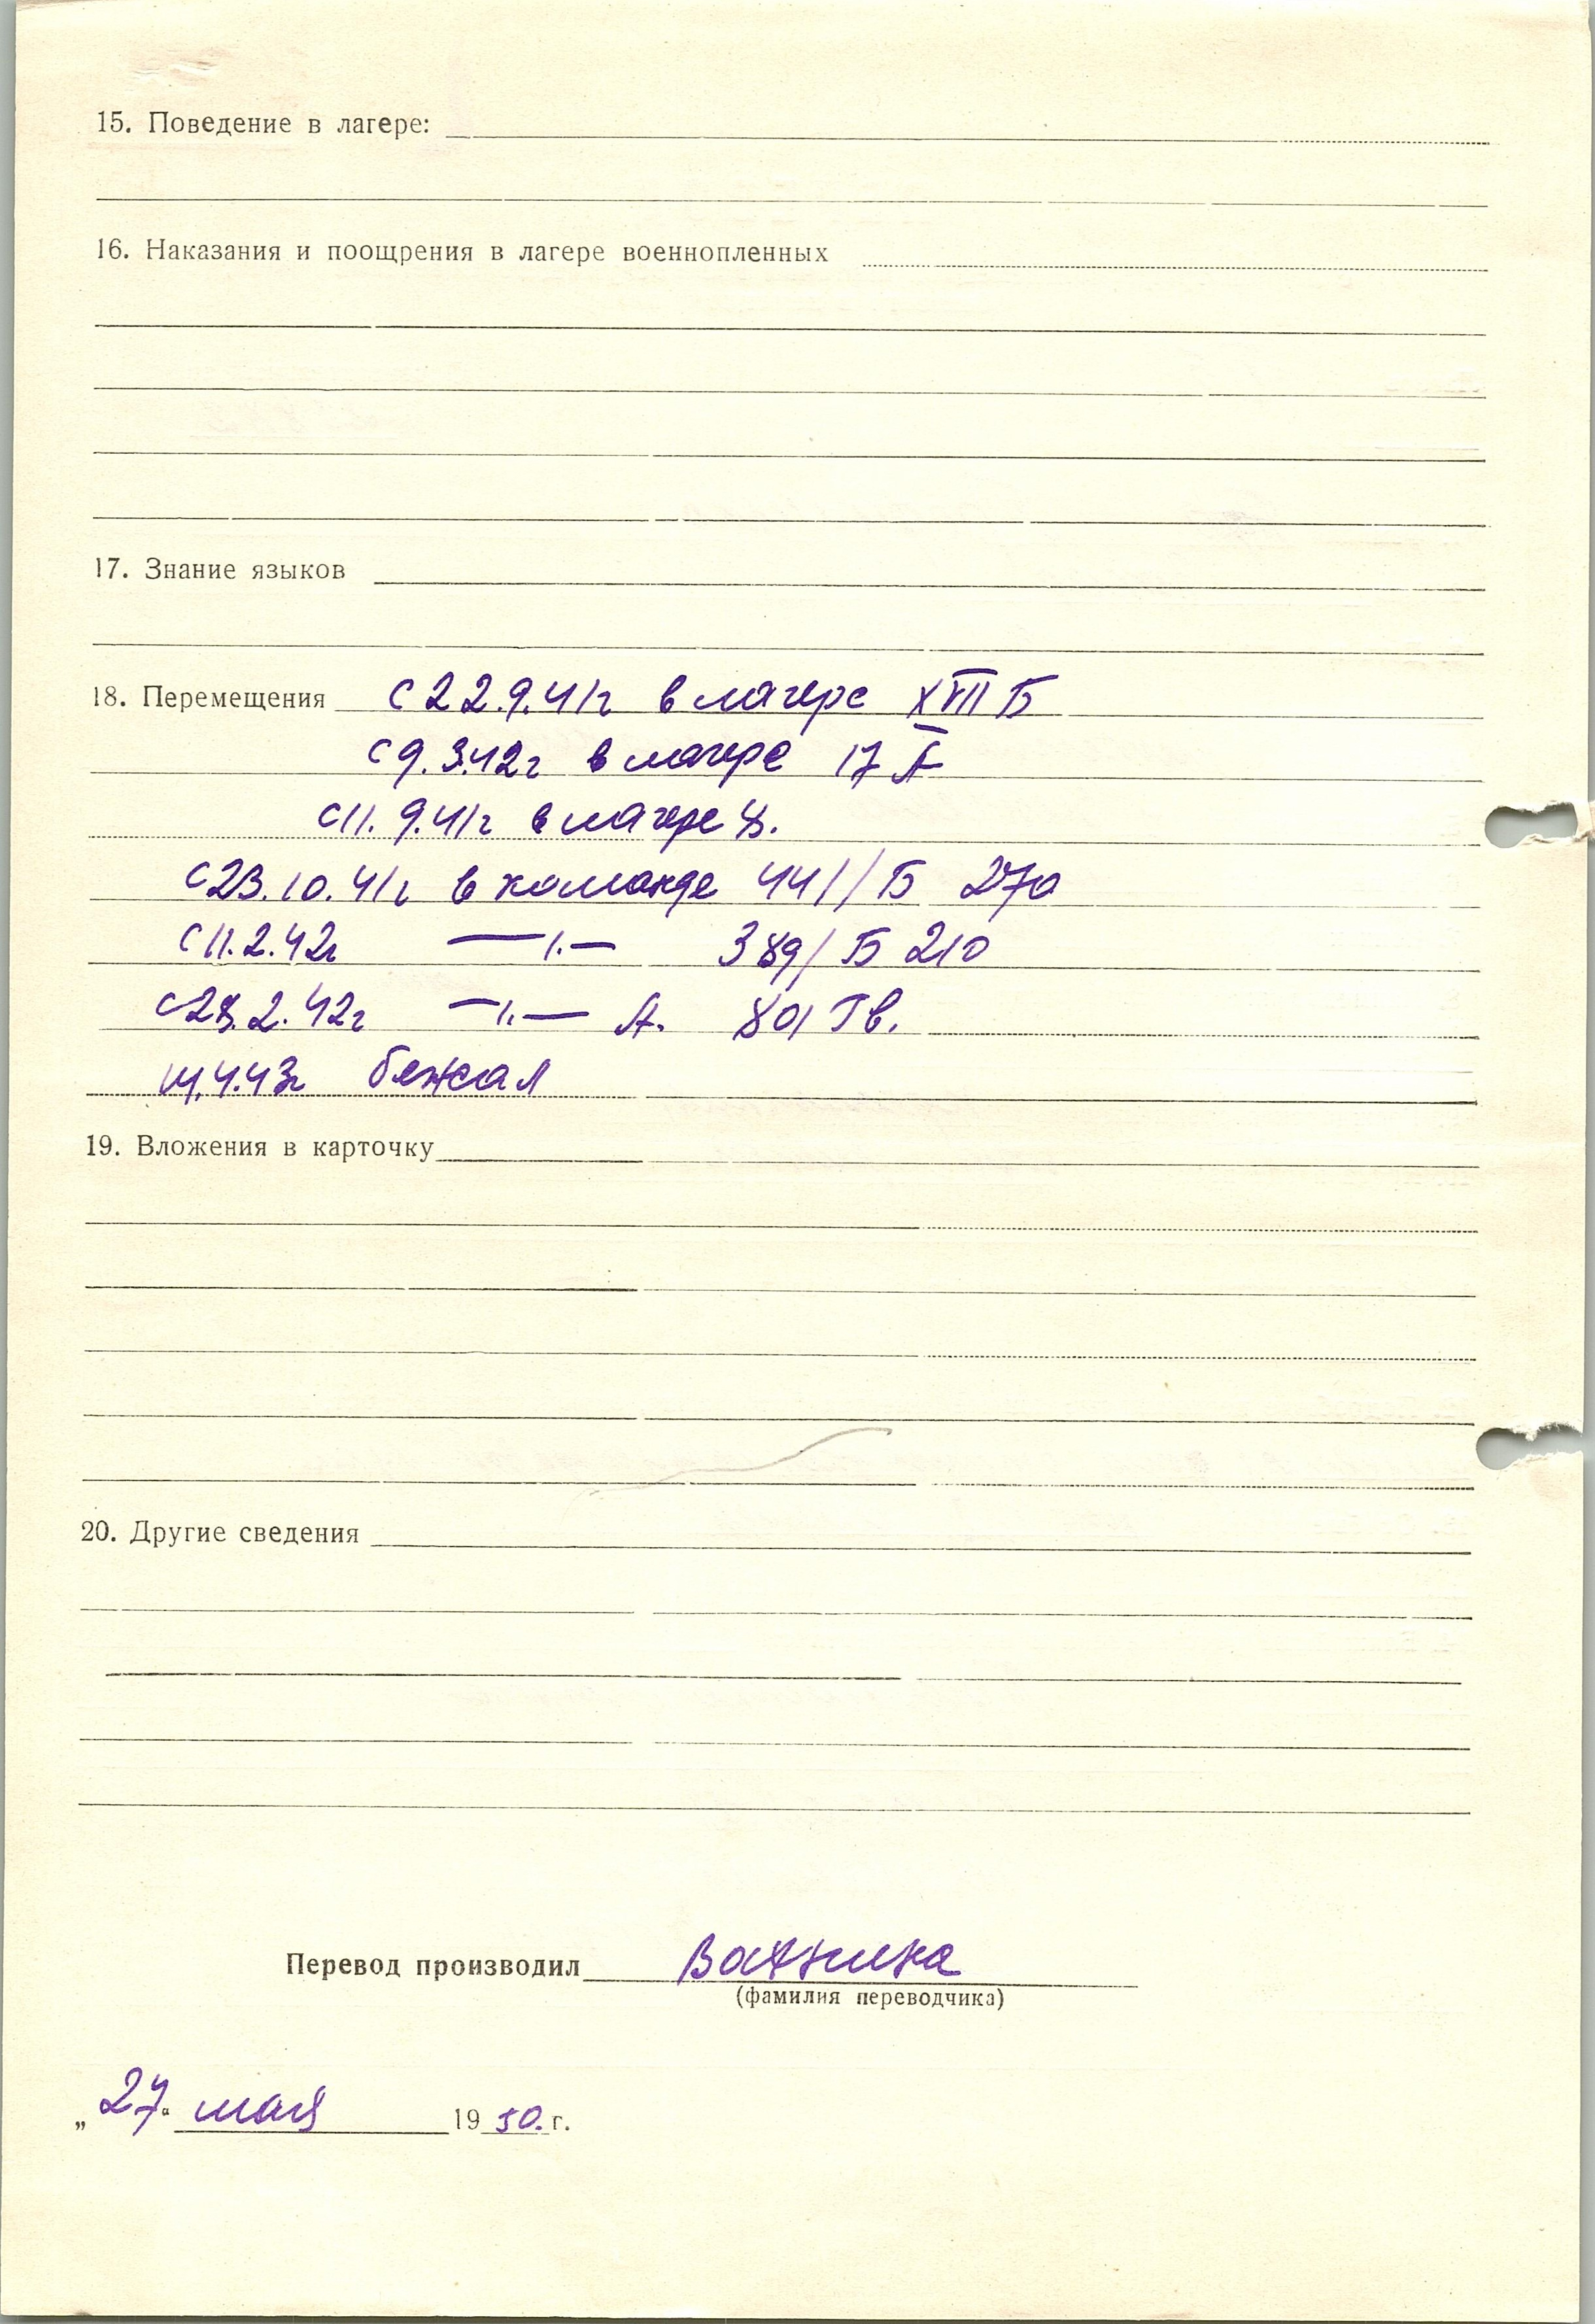 15. Поведение в лагере:
16. Наказания и поощрения в лагере военнопленных
17. Знание языков
18. Перемещения с 22.9.41г в лагере XVII Б
с 9.3.42г в лагере 17 А
с 11.9.41г в лагере 8.
с 23.10.41г в команде 441/Б 270
с 11.2.42г —"— 389/Б 210
с 28.2.42г —"— А. 801 Гв.
14.4.43г бежал
19. Вложения в карточку
20. Другие сведения
Перевод производил
(фамилия переводчика)
„27“ мая 1950.г.